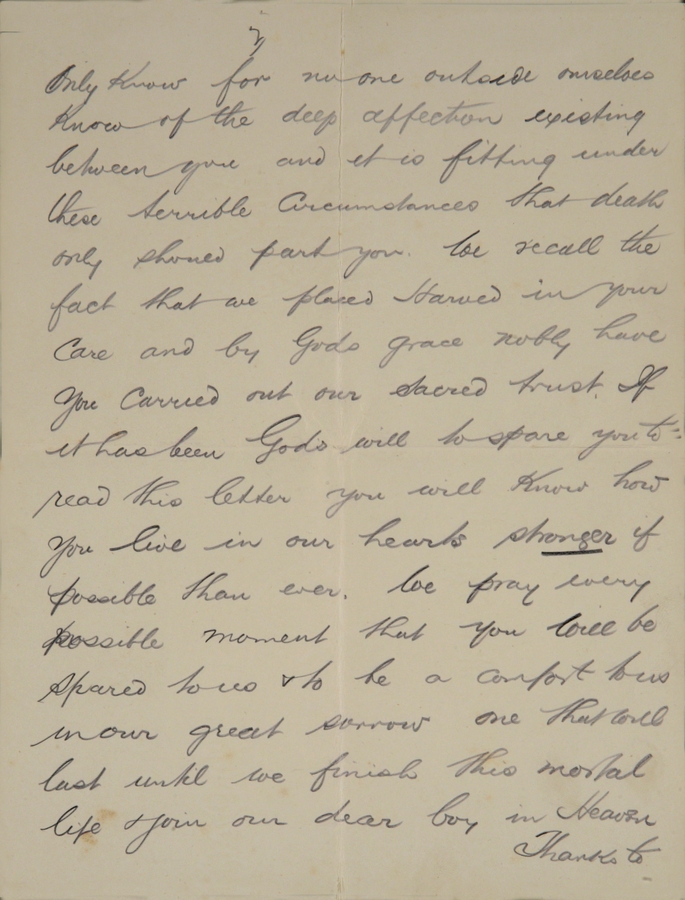 2
Only Know for no one outside ourselves
Know of the deep affection existing
between you and it is fitting under
these terrible Circumstances that death
only should part you. We recall the
fact that we placed Harved in your
Care and by Gods grace nobly have
You Carried out our sacred trust. If
it has been Gods will to spare you to
read this letter you will Know how
You live in our hearts stronger if
possible than ever. We pray every
possible moment that you will be
spared to us & to be a comfort to us
in our great sorrow one that will
last until we finish this mortal
life & join our dear boy in Heaven
Thanks to